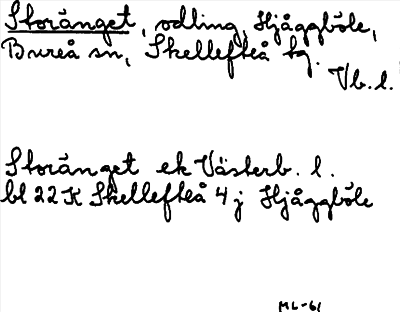 Storänget, odling, Hjåggböle,
Bureå sn, Skellefteå tg.
Vb. l.
Storänget ek Västerb. l.
bl 22 K Skellefteå 4 j Hjåggböle
ML-61